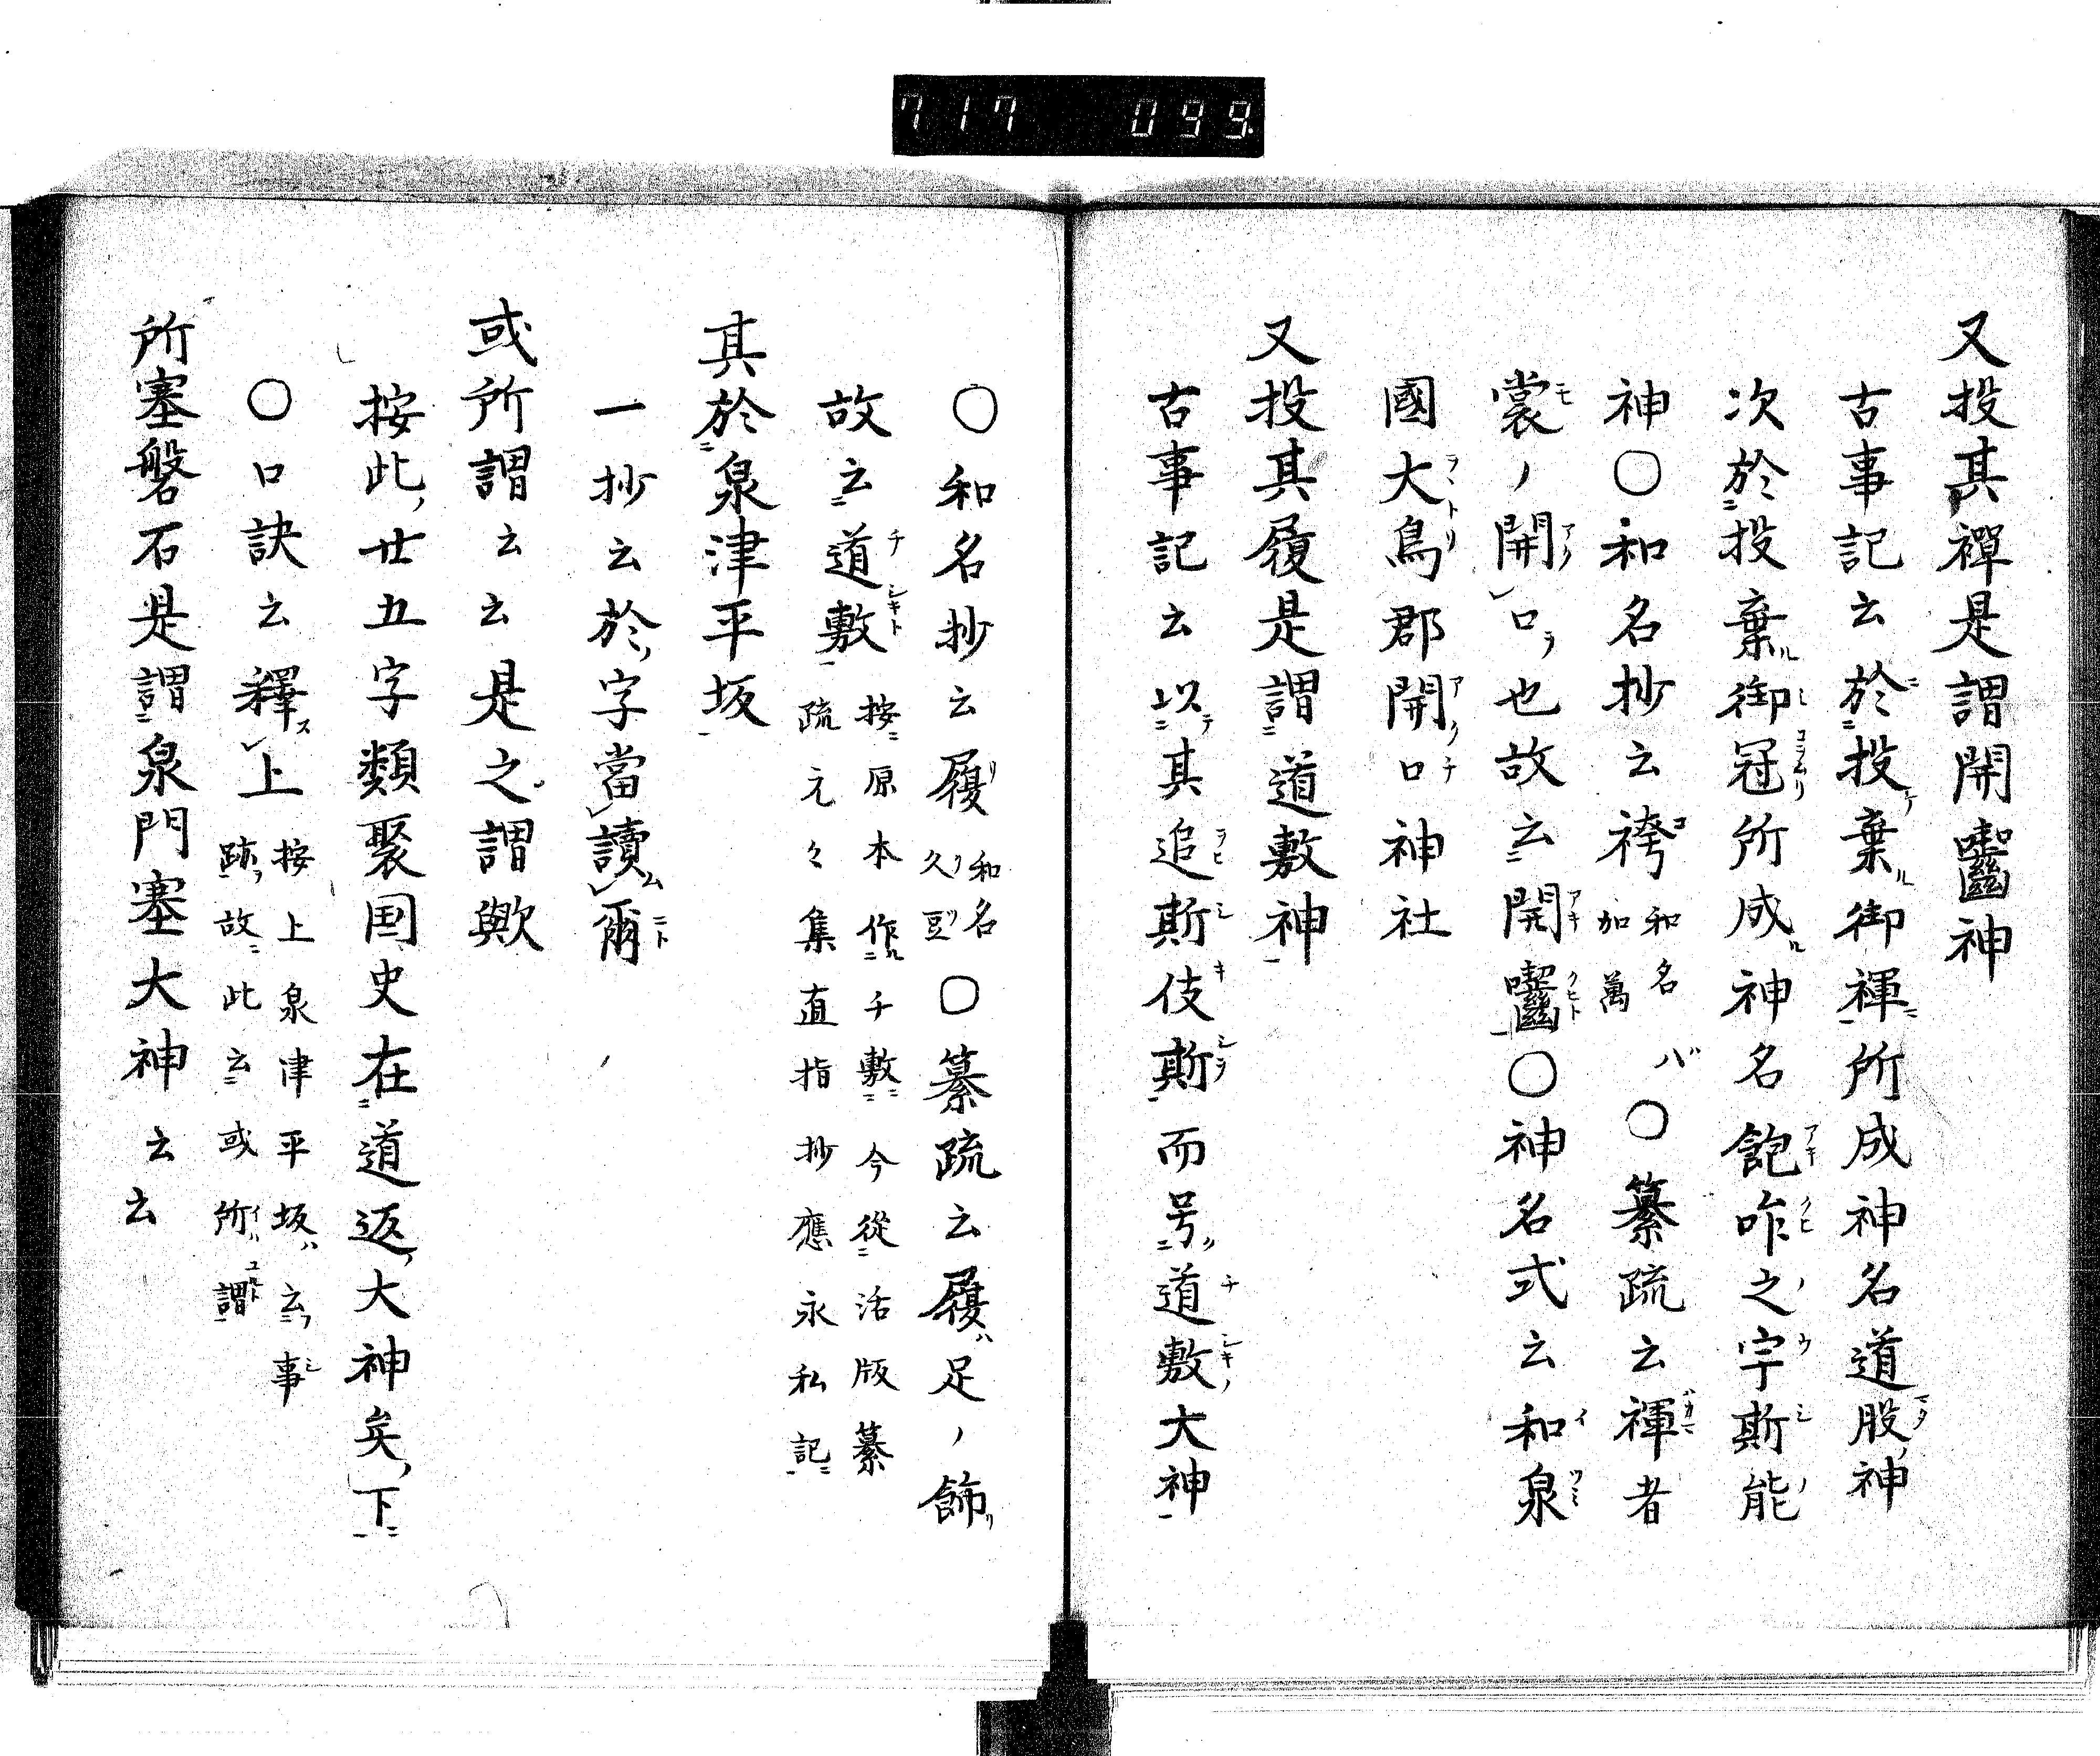 717 099
又投其襌是謂開囓神
古事記云於投棄御褌所成神名道股神
次於投棄御冠所成神名飽咋之宇斯能
神○和名抄云袴和名加萬バ○纂疏云褌者
裳ノ開口ヲ也故云開囓○神名式云和泉
國大鳥郡開口神社
又投其履是謂道敷神
古事記云以其追斯伎斯而号道敷大神
○和名抄云履和名久豆○纂疏云履ハ足ノ飾リ
故云道敷按原本作千敷今從活版纂
疏元々集直指抄應永私記
其於泉津平坂
一抄云於字當讀爾
或所謂云云是之謂歟
按此廿五字類聚国史在道返大神矣下
○口訣云釋上按上泉津平坂ハ云事
跡故此云或所謂
所塞磐石是謂泉門塞大神云云